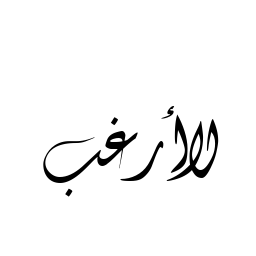 لا أرغب